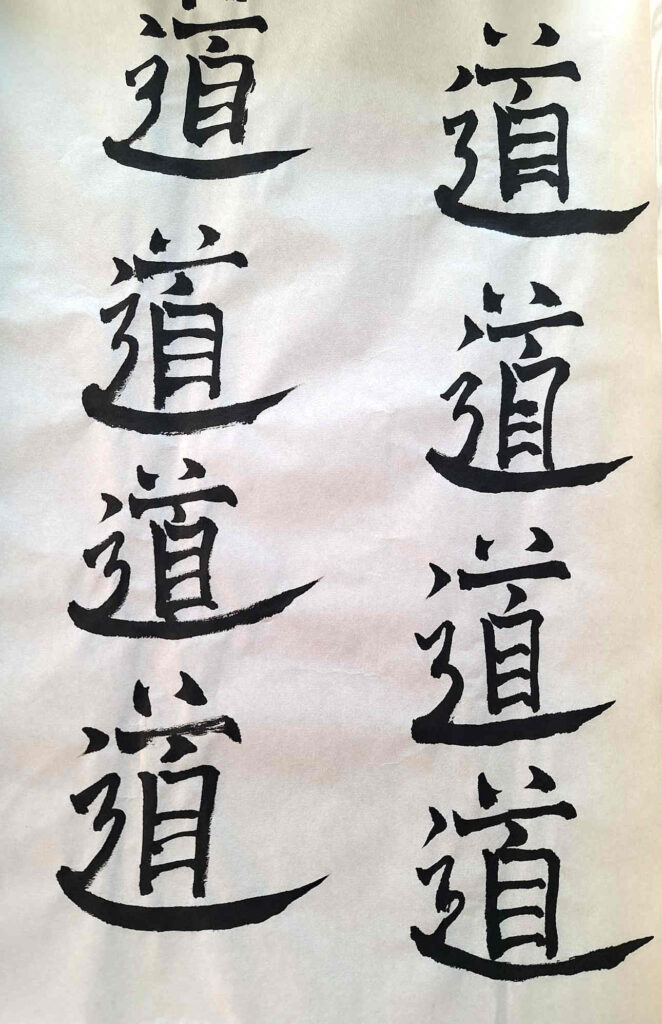 道道道道
道道道道